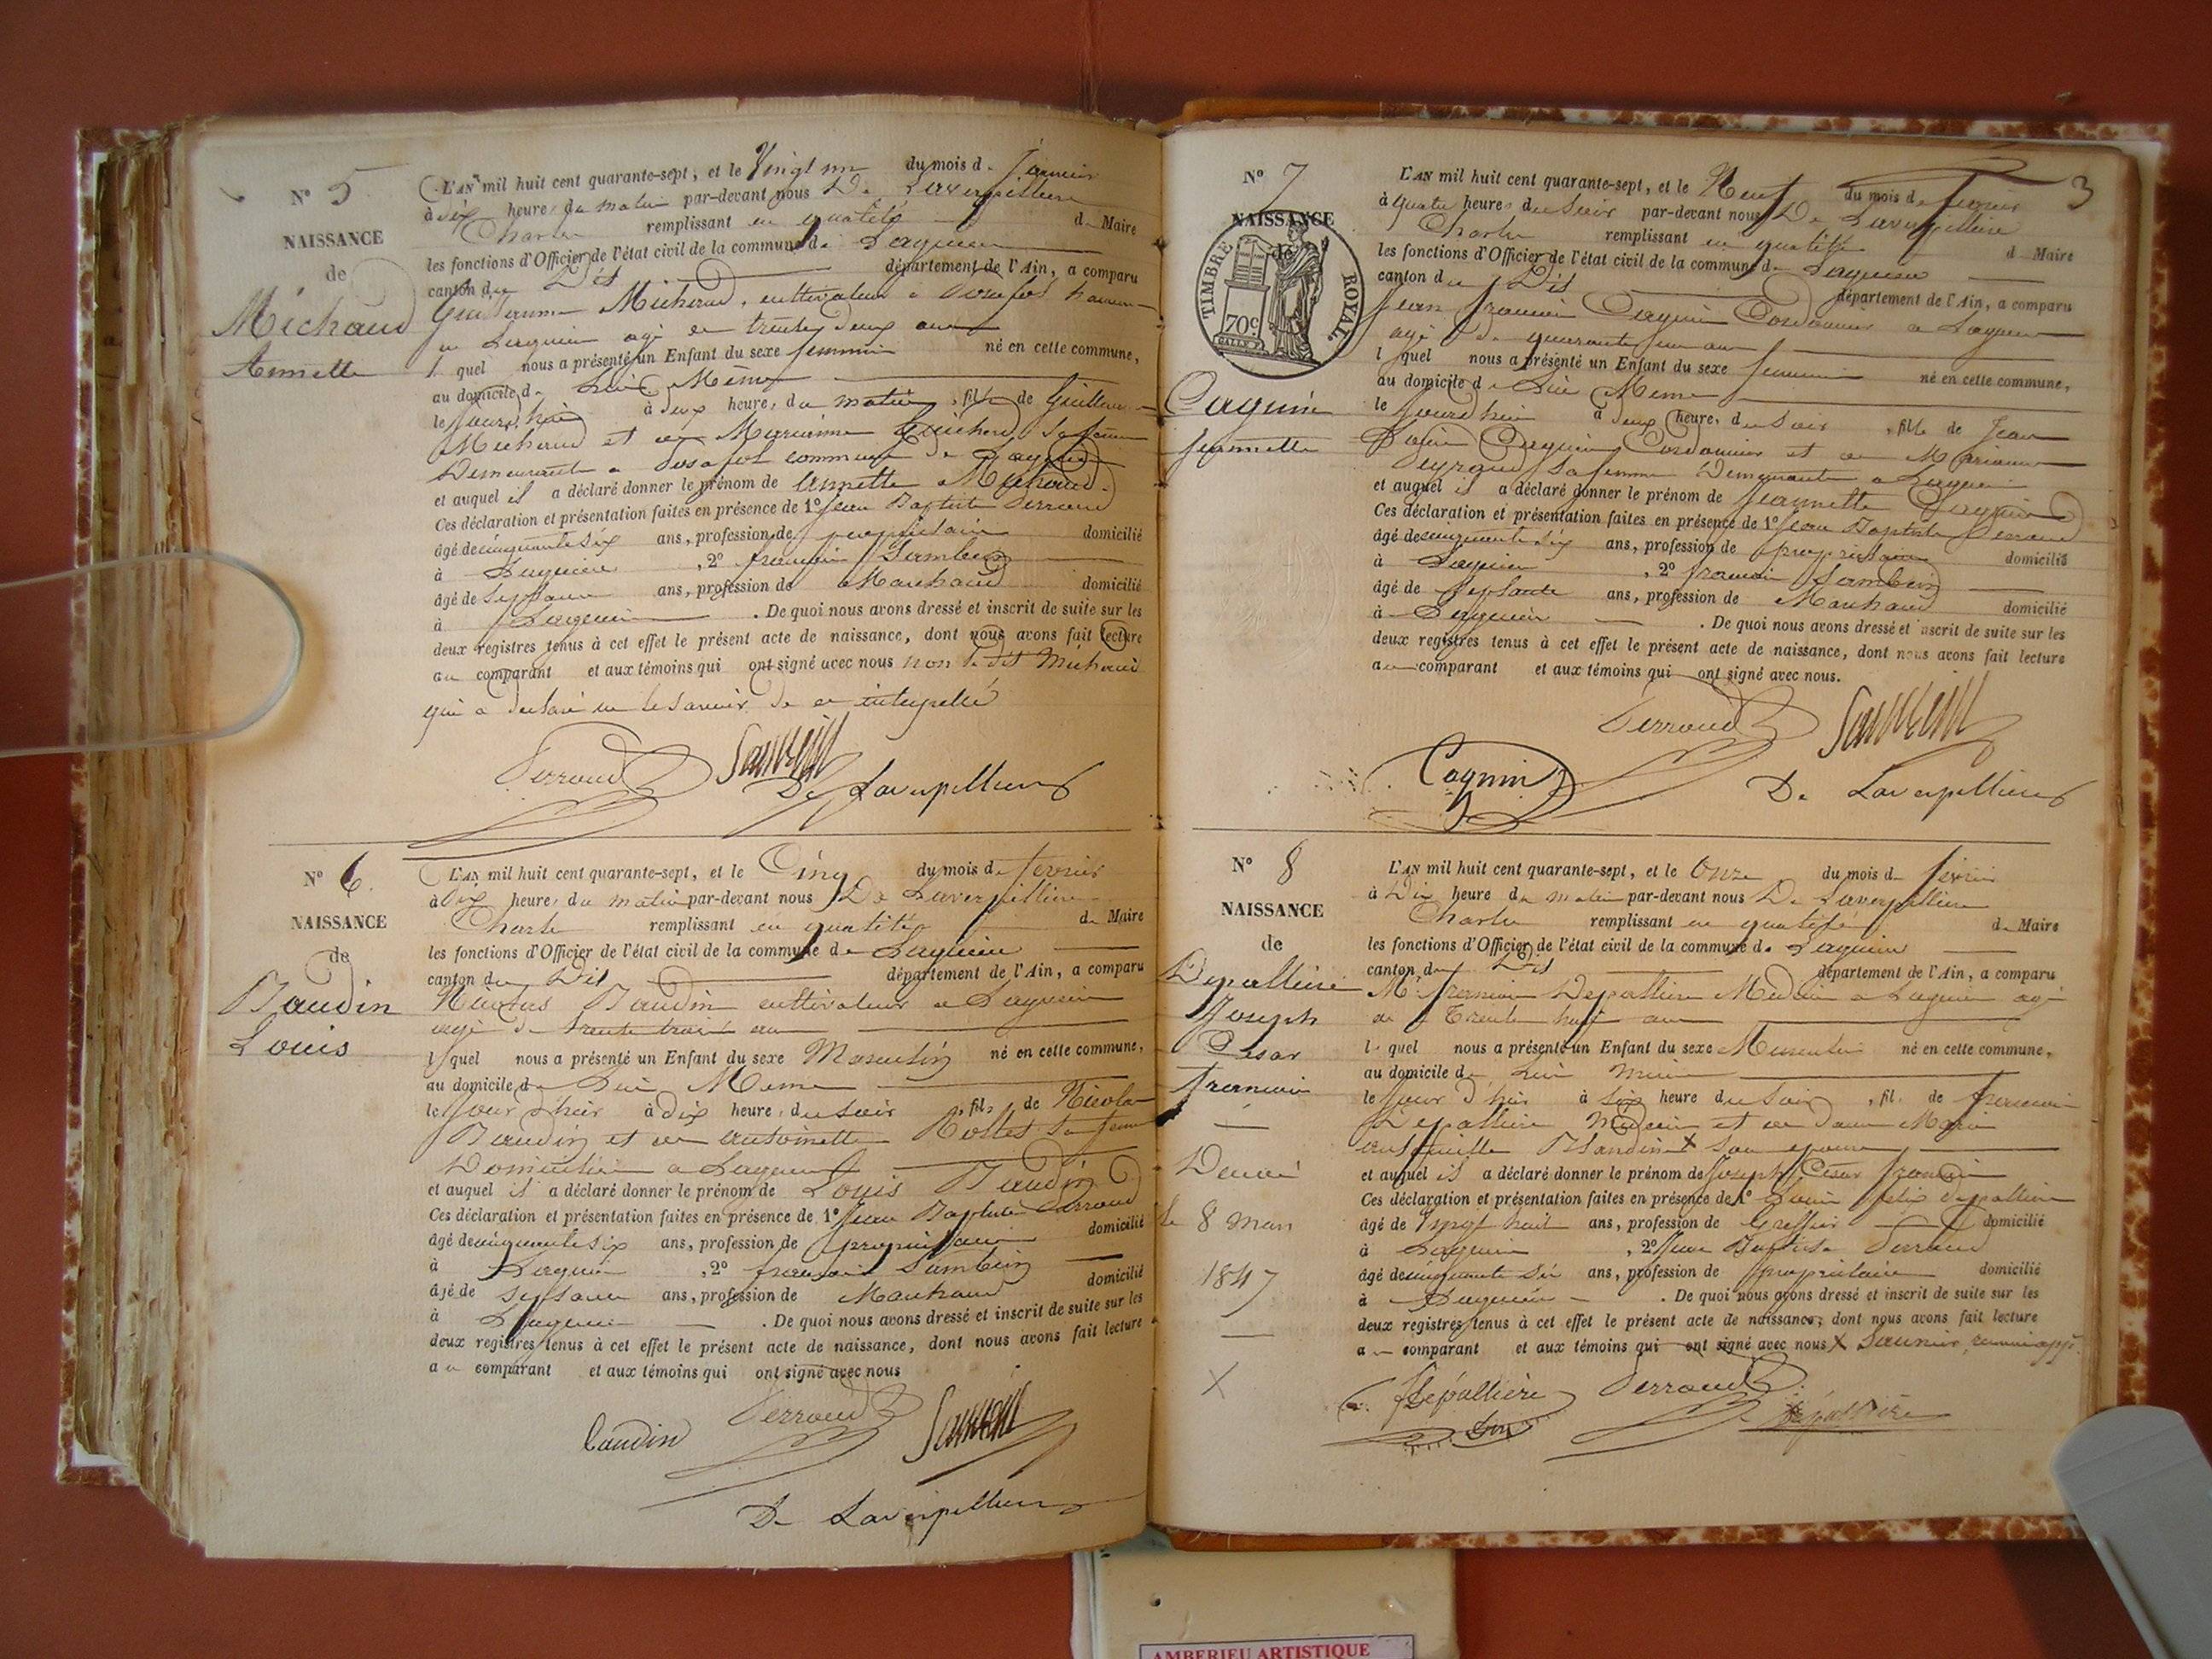 N° 5
NAISSANCE
de
Michaud
Annette
L'AN mil huit cent quarante-sept, et le Vingt un du mois de Janvier
à dix heure du matin par-devant nous De Laverpilliere
Charles remplissant en qualité de Maire
les fonctions d'Officier de l'état civil de la commune de Lagnieu
canton du Dit département de l'Ain, a comparu
Guillaume Michaud, cultivateur a
a Lagnieu agé de trente deux ans
lequel nous a présenté un Enfant du sexe feminin né en cette commune,
au domicile de Lui Même
le jourd'hui à deux heure, du matin, fille de Guillaume
Michaud et de Marianne sa femme
Demeurante a commune de Lagnieu
et auquel il a déclaré donner le prénom de Annette Michaud
Ces déclaration et présentation faites en présence de 1° Jean Baptiste Perroud
âgé de cinquante six ans, profession de propriétaire domicilié
à Lagnieu, 2° françois Sambein
âgé de Septante ans, profession de Marchand domicilié
à Lagnieu. De quoi nous avons dressé et inscrit de suite sur les
deux registres tenus à cet effet le présent acte de naissance, dont nous avons fait lecture
au comparant et aux témoins qui ont signé avec nous non le dit Michaud
qui a declaré ne le savoir de ce interpellé
Perroud Sambein
De Laverpilliere
N° 6.
NAISSANCE
de
Baudin
Louis
L'AN mil huit cent quarante-sept, et le Cinq du mois de fevrier
à dix heure, du matin par-devant nous De Laverpilliere
Charles remplissant en qualité de Maire
les fonctions d'Officier de l'état civil de la commune de Lagnieu
canton du Dit département de l'Ain, a comparu
Nicolas Baudin cultivateur a Lagnieu
agé de trente trois ans
lequel nous a présenté un Enfant du sexe Masculin né en cette commune,
au domicile de Lui Meme
le jour d'hier à dix heure, du soir, fils de Nicolas
Baudin et de antoinette Rollet sa femme
Domiciliée a Lagnieu
et auquel il a déclaré donner le prénom de Louis Baudin
Ces déclaration et présentation faites en présence de 1° Jean Baptiste Perroud
âgé de cinquante six ans, profession de propriétaire domicilié
à Lagnieu, 2° françois Sambein
âgé de Septante ans, profession de Marchand domicilié
à Lagnieu. De quoi nous avons dressé et inscrit de suite sur les
deux registres tenus à cet effet le présent acte de naissance, dont nous avons fait lecture
au comparant et aux témoins qui ont signé avec nous
Baudin Perroud Sambein
De Laverpilliere
3
N° 7
NAISSANCE
de
TIMBRE ROYAL.
70c
Cagnin
Jeannette
L'AN mil huit cent quarante-sept, et le Neuf du mois de fevrier
à quatre heures du soir par-devant nous De Laverpilliere
Charles remplissant en qualité de Maire
les fonctions d'Officier de l'état civil de la commune de Lagnieu
canton du Dit département de l'Ain, a comparu
Jean françois Cagnin Cordonnier a Lagnieu
agé de quarante un ans
lequel nous a présenté un Enfant du sexe feminin né en cette commune,
au domicile de Lui Meme
le jourd'hui à deux heure, du soir, fille de Jean
Cagnin Cordonnier et de Marianne
Peyraud sa femme Demeurante a Lagnieu
et auquel il a déclaré donner le prénom de Jeannette Cagnin
Ces déclaration et présentation faites en présence de 1° Jean Baptiste Perroud
âgé de cinquante six ans, profession de propriétaire domicilié
à Lagnieu, 2° françois Sambein
âgé de Septante ans, profession de Marchand domicilié
à Lagnieu. De quoi nous avons dressé et inscrit de suite sur les
deux registres tenus à cet effet le présent acte de naissance, dont nous avons fait lecture
au comparant et aux témoins qui ont signé avec nous.
Perroud Sambein
Cagnin De Laverpilliere
N° 8
NAISSANCE
de
Depalliere
Joseph
Cesar
francois
Decedé
le 8 mars
1847
X
L'AN mil huit cent quarante-sept, et le Onze du mois de fevrier
à Dix heure du matin par-devant nous De Laverpilliere
Charles remplissant en qualité de Maire
les fonctions d'Officier de l'état civil de la commune de Lagnieu
canton du Dit département de l'Ain, a comparu
Mr francois Depalliere Medecin a Lagnieu agé
de Trente huit ans
lequel nous a présenté un Enfant du sexe Masculin né en cette commune,
au domicile de Lui meme
le jour d'hier à six heure du soir, fils de francois
Depalliere Medecin et de dame Marie
Blandine X son epouse
et auquel il a déclaré donner le prénom de Joseph Cesar francois
Ces déclaration et présentation faites en présence de 1° felix Depalliere
âgé de Vingt huit ans, profession de Greffier domicilié
à Lagnieu, 2° Jean Baptiste Perroud
âgé de cinquante six ans, profession de propriétaire domicilié
à Lagnieu. De quoi nous avons dressé et inscrit de suite sur les
deux registres tenus à cet effet le présent acte de naissance, dont nous avons fait lecture
au comparant et aux témoins qui ont signé avec nous X Saunier
Depallière Perroud Depallière
AMBERIEU ARTISTIQUE